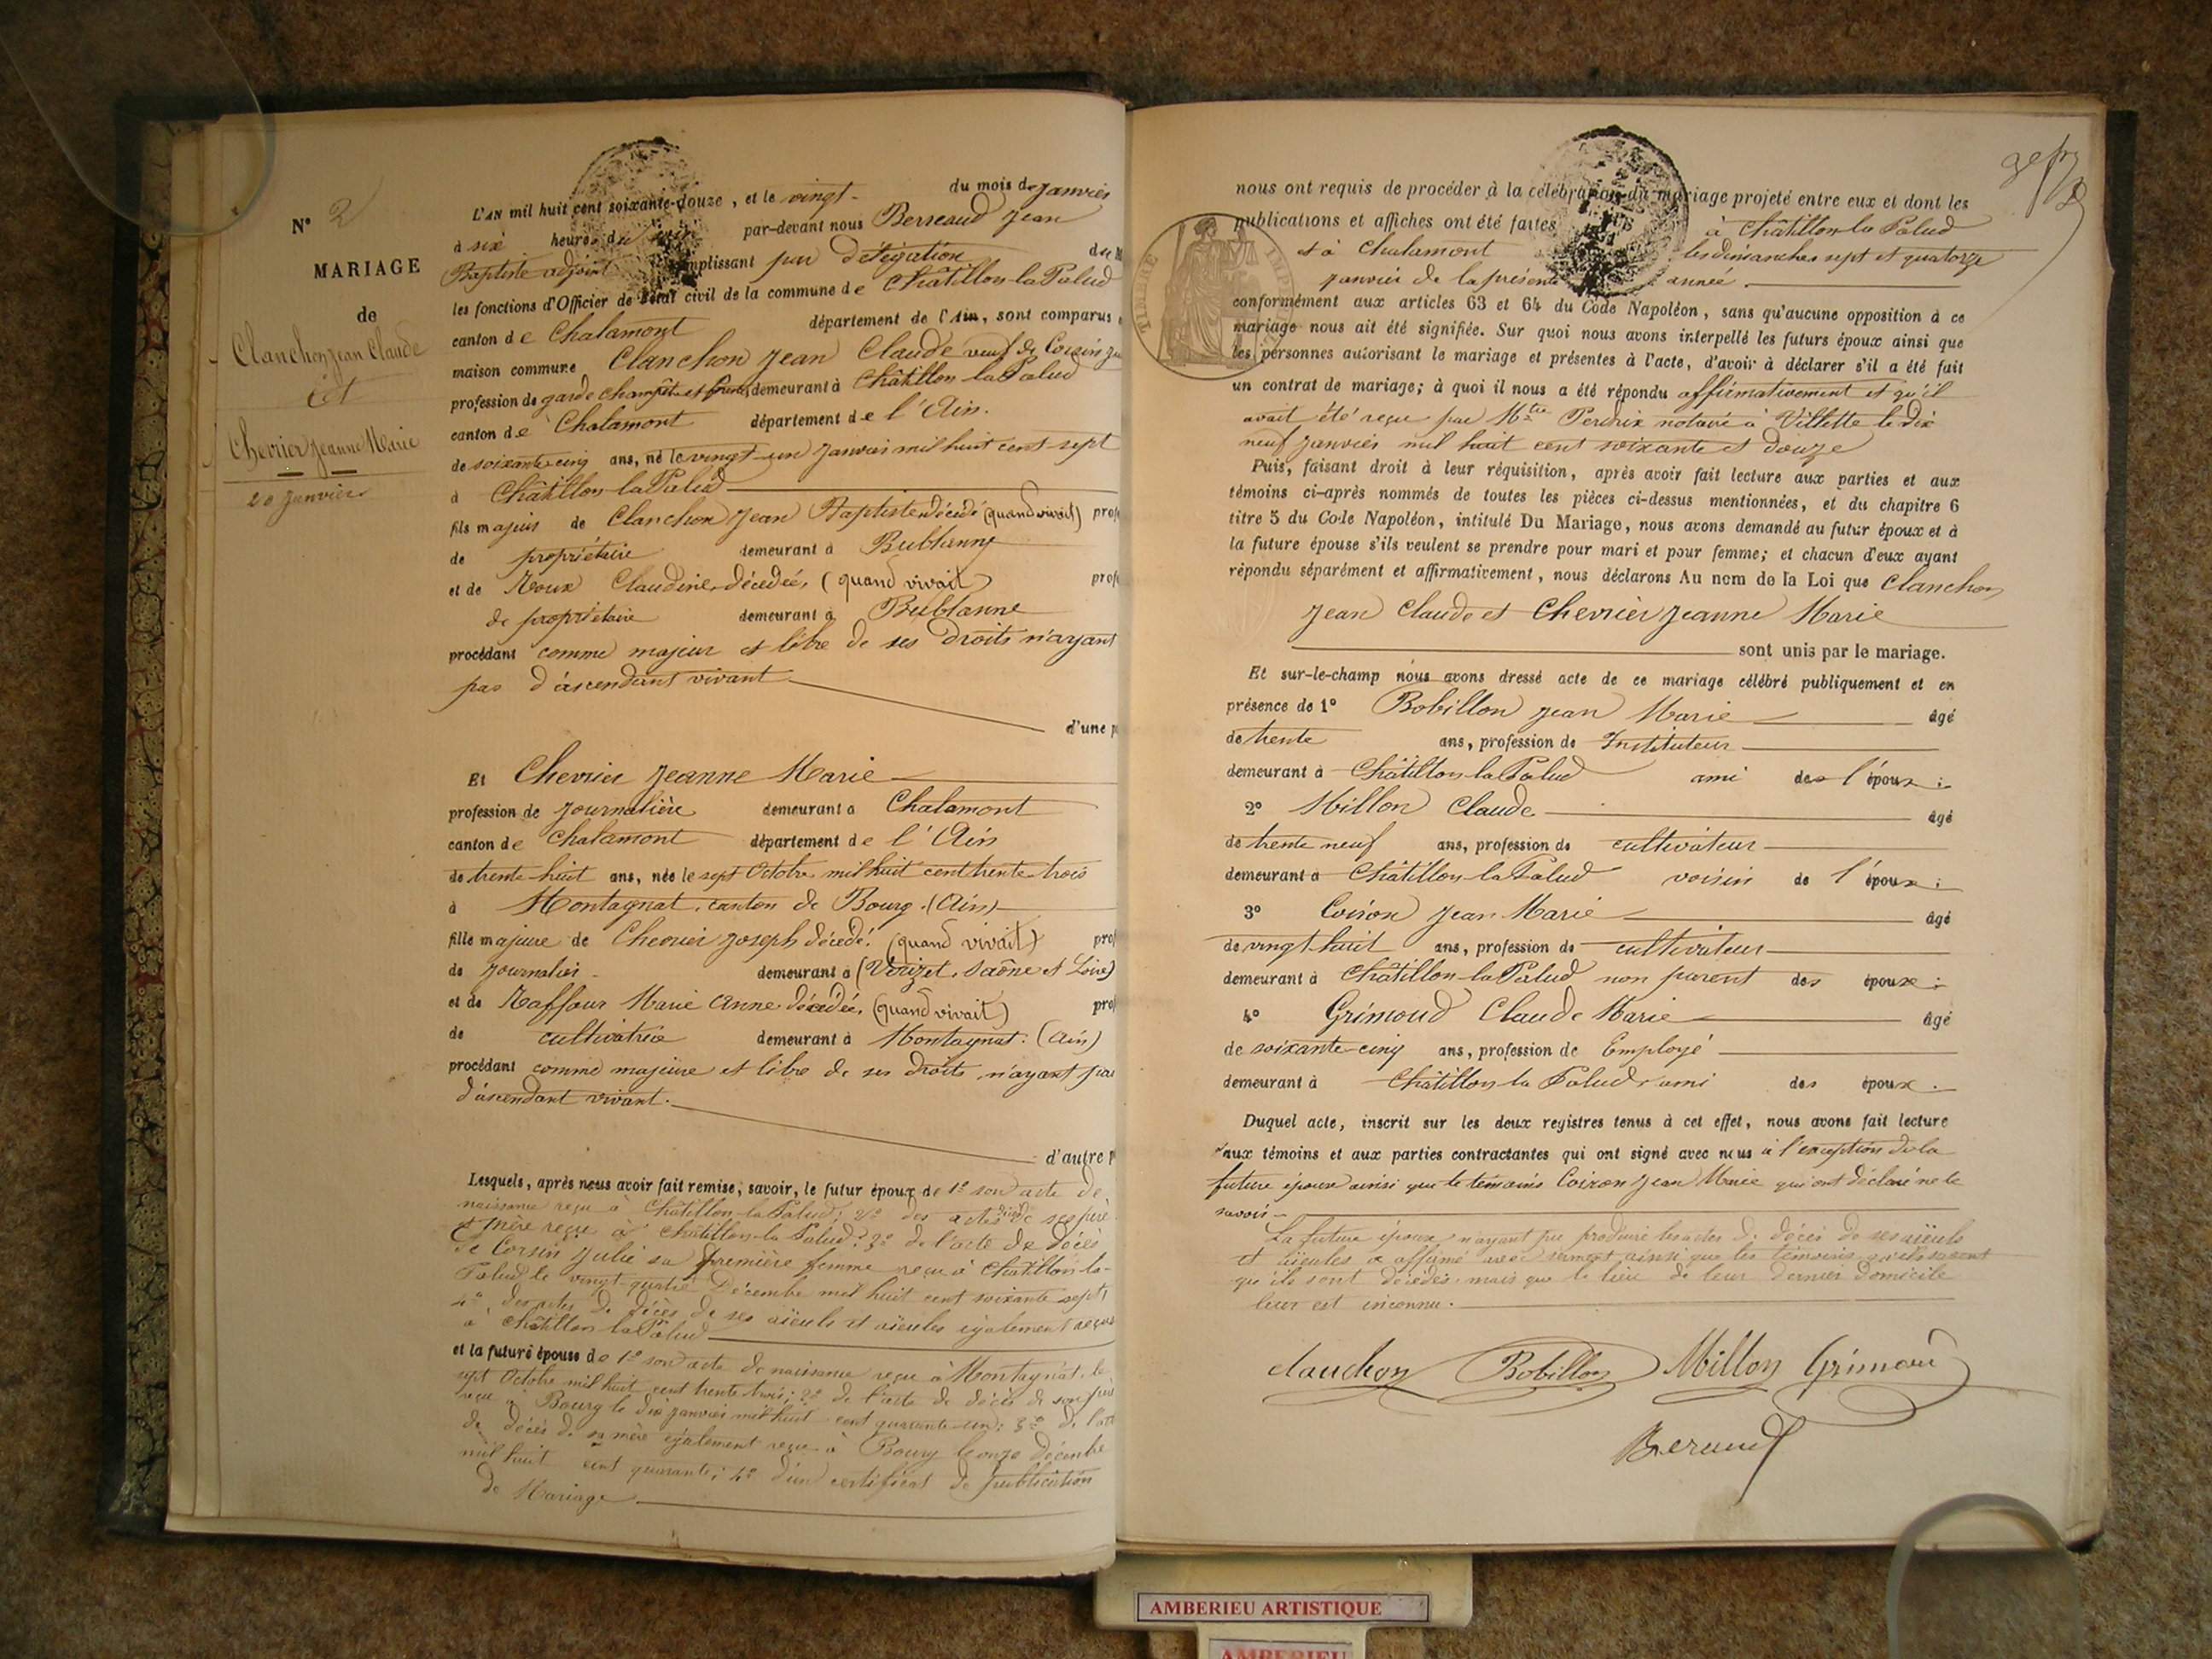 N° 2
MARIAGE
de
Clanchon Jean Claude
et
Chevrier Jeanne Marie
20 Janvier
L'AN mil huit cent soixante-douze, et le vingt du mois de Janvier
à six heures du soir par-devant nous Berraud Jean
Baptiste adjoint remplissant par délégation du
les fonctions d'Officier de l'état civil de la commune de Châtillon-la-Palud
canton de Chalamont département de l'Ain, sont comparus
maison commune Clanchon Jean Claude veuf de Corsin
profession de garde champêtre demeurant à Châtillon la Palud
canton de Chalamont département de l'Ain.
de soixante-cinq ans, né le vingt-un Janvier mil huit cent sept
à Châtillon-la-Palud
fils majeur de Clanchon Jean Baptiste décédé (quand vivait) prof
de propriétaire demeurant à Bublanne
et de Roux Claudine, décédée, (quand vivait) prof
de propriétaire demeurant à Bublanne
procédant comme majeur et libre de ses droits n'ayant
pas d'ascendant vivant.
d'une p
Et Chevrier Jeanne Marie
profession de Journalière demeurant à Chalamont
canton de Chalamont département de l'Ain
de trente-huit ans, née le sept Octobre mil huit cent trente-trois
à Montagnat, canton de Bourg. (Ain)
fille majeure de Chevrier Joseph décédé. (quand vivait) prof
de Journalier demeurant à (Verizet, Saône et Loire)
et de Raffour Marie Anne décédée, (quand vivait) prof
de cultivatrice demeurant à Montagnat. (Ain)
procédant comme majeure et libre de ses droits n'ayant pas
d'ascendant vivant.
d'autre p
Lesquels, après nous avoir fait remise, savoir, le futur époux de 1° son acte de
naissance reçu à Châtillon-la-Palud; 2° des actes de ses père
et mère reçu à Châtillon-la Palud; 3° de l'acte de décès
de Corsin Julie sa première femme reçu à Châtillon-la-
Palud le vingt quatre Décembre mil huit cent soixante sept;
4° des actes de décès de ses aïeuls et aïeules également reçus
à Châtillon-la-Palud
et la future épouse de 1° son acte de naissance reçu à Montagnat, le
sept Octobre mil huit cent trente trois; 2° de l'acte de décès de son père
reçu à Bourg le dix janvier mil huit cent quarante-un; 3° de l'acte
de décès de sa mère également reçu à Bourg le onze décembre
mil huit cent quarante; 4° d'un certificat de publication
de Mariage
nous ont requis de procéder à la célébration du mariage projeté entre eux et dont les
publications et affiches ont été faites à Châtillon la Palud
et à Chalamont les dimanches sept et quatorze
janvier de la présente année.
TIMBRE IMP
conformément aux articles 63 et 64 du Code Napoléon, sans qu'aucune opposition à ce
mariage nous ait été signifiée. Sur quoi nous avons interpellé les futurs époux ainsi que
les personnes autorisant le mariage et présentes à l'acte, d'avoir à déclarer s'il a été fait
un contrat de mariage; à quoi il nous a été répondu affirmativement et qu'il
avait été reçu par Mtre Perdrix notaire à Villette le dix
neuf janvier mil huit cent soixante et douze
Puis, faisant droit à leur réquisition, après avoir fait lecture aux parties et aux
témoins ci-après nommés de toutes les pièces ci-dessus mentionnées, et du chapitre 6
titre 5 du Code Napoléon, intitulé Du Mariage, nous avons demandé au futur époux et à
la future épouse s'ils veulent se prendre pour mari et pour femme; et chacun d'eux ayant
répondu séparément et affirmativement, nous déclarons Au nom de la Loi que Clanchon
Jean Claude et Chevrier Jeanne Marie
sont unis par le mariage.
Et sur-le-champ nous avons dressé acte de ce mariage célébré publiquement et en
présence de 1° Bobillon Jean Marie âgé
de trente ans, profession de Instituteur
demeurant à Châtillon-la-Palud ami de l'époux;
2° Millon Claude âgé
de trente neuf ans, profession de cultivateur
demeurant à Châtillon-la-Palud voisin de l'époux;
3° Coiron Jean Marie âgé
de vingt-huit ans, profession de cultivateur
demeurant à Châtillon-la-Palud non parent des époux;
4° Grimoud Claude Marie âgé
de soixante-cinq ans, profession de Employé
demeurant à Châtillon la Palud ami des époux.
Duquel acte, inscrit sur les deux registres tenus à cet effet, nous avons fait lecture
aux témoins et aux parties contractantes qui ont signé avec nous à l'exception de la
future épouse ainsi que le témoins Coiron Jean Marie qui ont déclaré ne le
savoir
La future épouse n'ayant pu produire les actes de décès de ses aïeuls
et aïeules a affirmé avec serment ainsi que les témoins
qu'ils sont décédés, mais que le lieu de leur dernier domicile
leur est inconnu.
Clanchon Bobillon Millon Grimoud
Beraud
AMBERIEU ARTISTIQUE
AMBERIEU